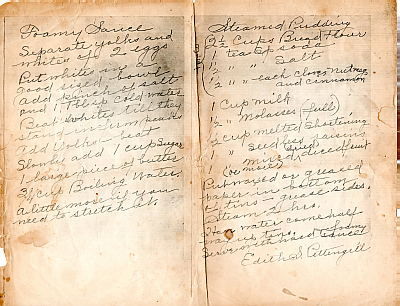 Foamy Sauce
Separate yolks and
whites of 2 eggs
Put whites in a
good sized bowl
Add pinch of salt
and 1 Tblsp cold water
Beat whites till they
stand in firm peaks
add yolks - beat
Slowly add 1 cup sugar
1 large piece of butter
3/4 cup Boiling Water.
A little more if you
need to stretch it.
Steamed Pudding
2 1/2 Cups Bread Flour
1 tea sp soda
1/2 " " Salt
1/2 " " each cloves nutmeg
and cinnamon
1 Cup milk
1/2 " Molasses (full)
1/2 cup melted shortening
1 " Seedless raisins
1 " mixed diced fruit
(or more) dried
Put waxed or greased
paper in bottom
of tins - grease sides.
Steam 2 hrs.
Have water come half
way up tins.
Serve with Foamy
Edith S. Pettengill